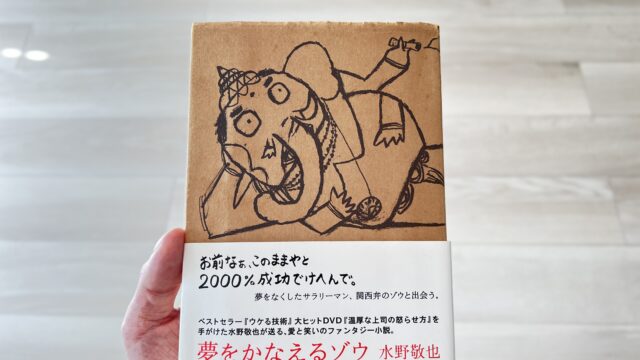 お前なぁ、このままやと
2000%成功でけへんで。
夢をなくしたサラリーマン、関西弁のゾウと出会う。
ベストセラー『ウケる技術』大ヒットDVD『温厚な上司の怒らせ方』を
手がけた水野敬也が送る、愛と笑いのファンタジー小説。
夢をかなえるゾウ 水野敬也